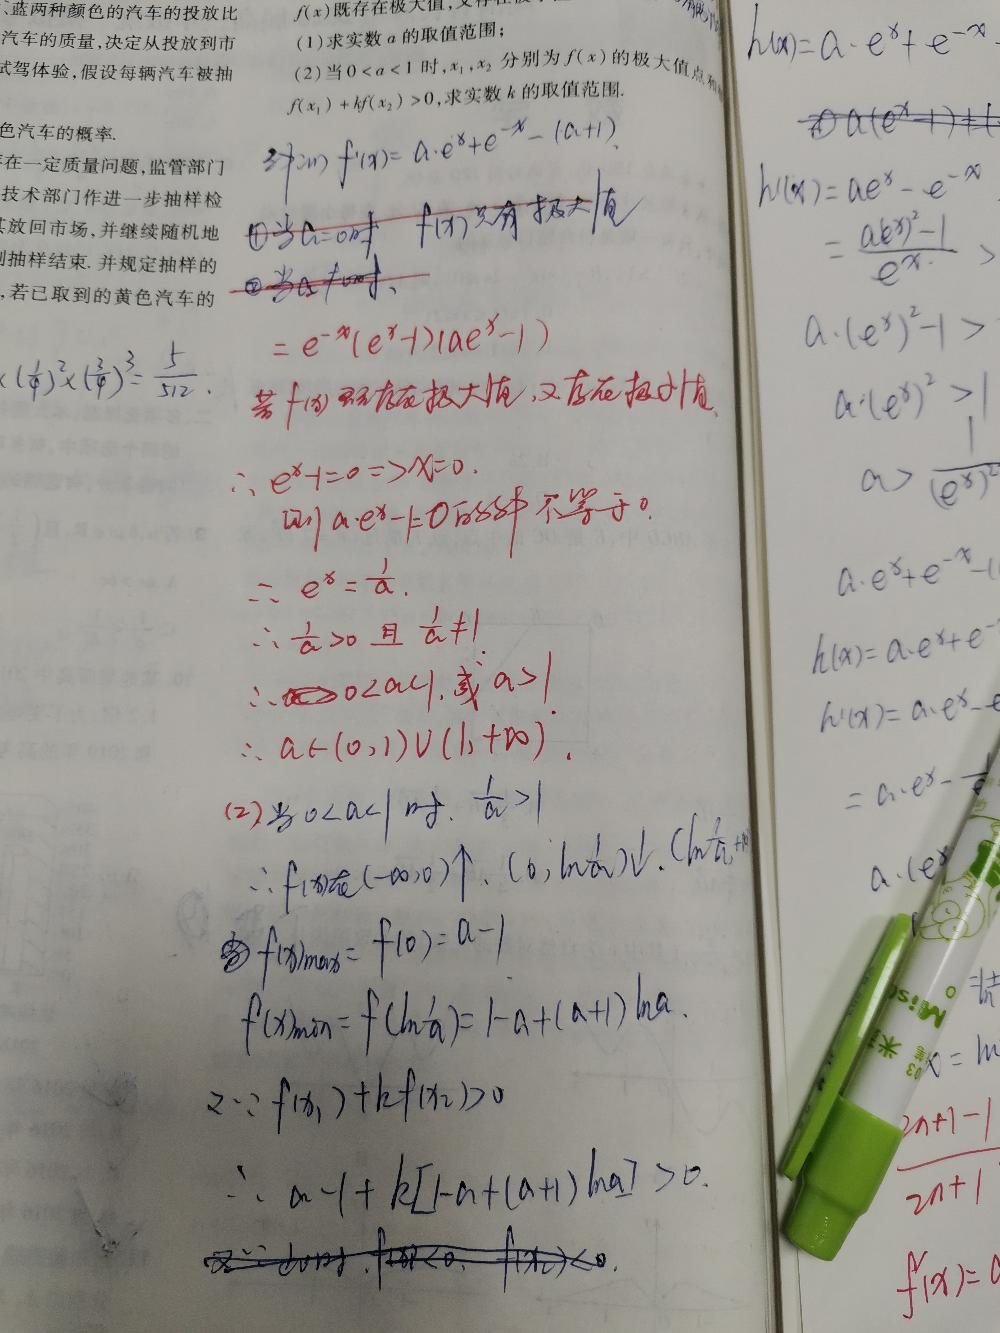 、蓝两种颜色的汽车的投放比
汽车的质量,决定从投放到市
试驾体验,假设每辆汽车被抽
色汽车的概率.
在一定质量问题,监管部门
技术部门作进一步抽样检
其放回市场,并继续随机地
则抽样结束.并规定抽样的
,若已取到的黄色汽车的
×(1/4)²×(3/4)³=5/512.
f(x)既存在极大值,又存在极
(1)求实数a的取值范围;
(2)当0<a<1时,x₁,x₂分别为f(x)的极大值点和
f(x₁)+kf(x₂)>0,求实数k的取值范围.
f'(x)=a·eˣ+e⁻ˣ-(a+1).
①当a=0时 f(x)只有极大值
②当a≠0时、
=e⁻ˣ(eˣ-1)(aeˣ-1)
若f(x)既存在极大值,又存在极小值,
∴eˣ-1=0=>x=0.
则a·eˣ-1=0的 不等于0.
∴eˣ=1/a.
∴1/a>0且1/a≠1
∴0<a<1.或a>1.
∴a∈(0,1)∪(1,+∞).
(2)当0<a<1时.1/a>1
∴f(x)在(-∞,0)↑.(0,ln1/a)↓.(ln1/a,+∞)
f(x)max=f(0)=a-1
f(x)min=f(ln1/a)=1-a+(a+1)lna.
又∵f(x₁)+kf(x₂)>0
∴a-1+k[1-a+(a+1)lna]>0.
h(x)=a·eˣ+e⁻ˣ-
h'(x)=aeˣ-e⁻ˣ
=a(eˣ)²-1/eˣ>
a·(eˣ)²-1>
a·(eˣ)²>1
a>1/(eˣ)²
a·eˣ+e⁻ˣ-(
h(x)=a·eˣ+e⁻
h'(x)=a·eˣ-e
=a·eˣ-1/e
a·(eˣ
x=ln
2n+1-1
2n+1
f'(x)=a